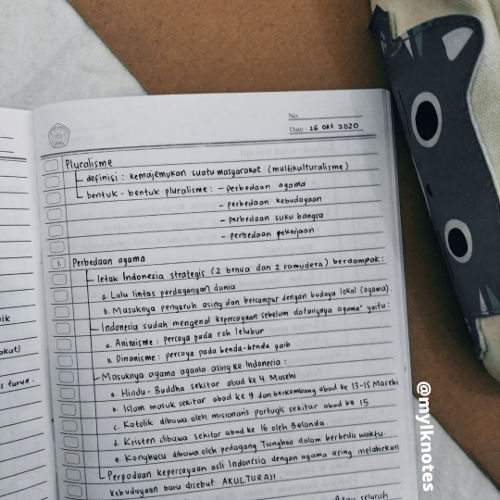 No.
Date 26 Okt 2020
Pluralisme
definisi : kemajemukan suatu masyarakat (multikulturalisme)
bentuk-bentuk pluralisme : - perbedaan agama
- perbedaan kebudayaan
- perbedaan suku bangsa
- perbedaan pekerjaan
1. Perbedaan agama
letak Indonesia strategis (2 benua dan 2 samudera) berdampak :
a. Lalu lintas perdagangan dunia
b. Masuknya pengaruh asing dan bercampur dengan budaya lokal (agama).
Indonesia sudah mengenal kepercayaan sebelum datangnya agama" yaitu :
a. Animisme : percaya pada roh leluhur
b. Dinamisme : percaya pada benda-benda gaib
Masuknya agama agama asing ke Indonesia :
a. Hindu - Buddha sekitar abad ke 4 Masehi
b. Islam masuk sekitar abad ke 9 dan berkembang abad ke 13-15 Masehi
c. Katolik dibawa oleh misionaris portugis sekitar abad ke 15
d. Kristen dibawa sekitar abad ke 16 oleh Belanda.
e. Konghucu dibawa oleh pedagang Tionghoa dalam berbeda waktu.
Perpaduan kepercayaan asli Indonesia dengan agama asing melahirkan
kebudayaan baru disebut AKULTURASI.
Atau seluruh
@mylknotes